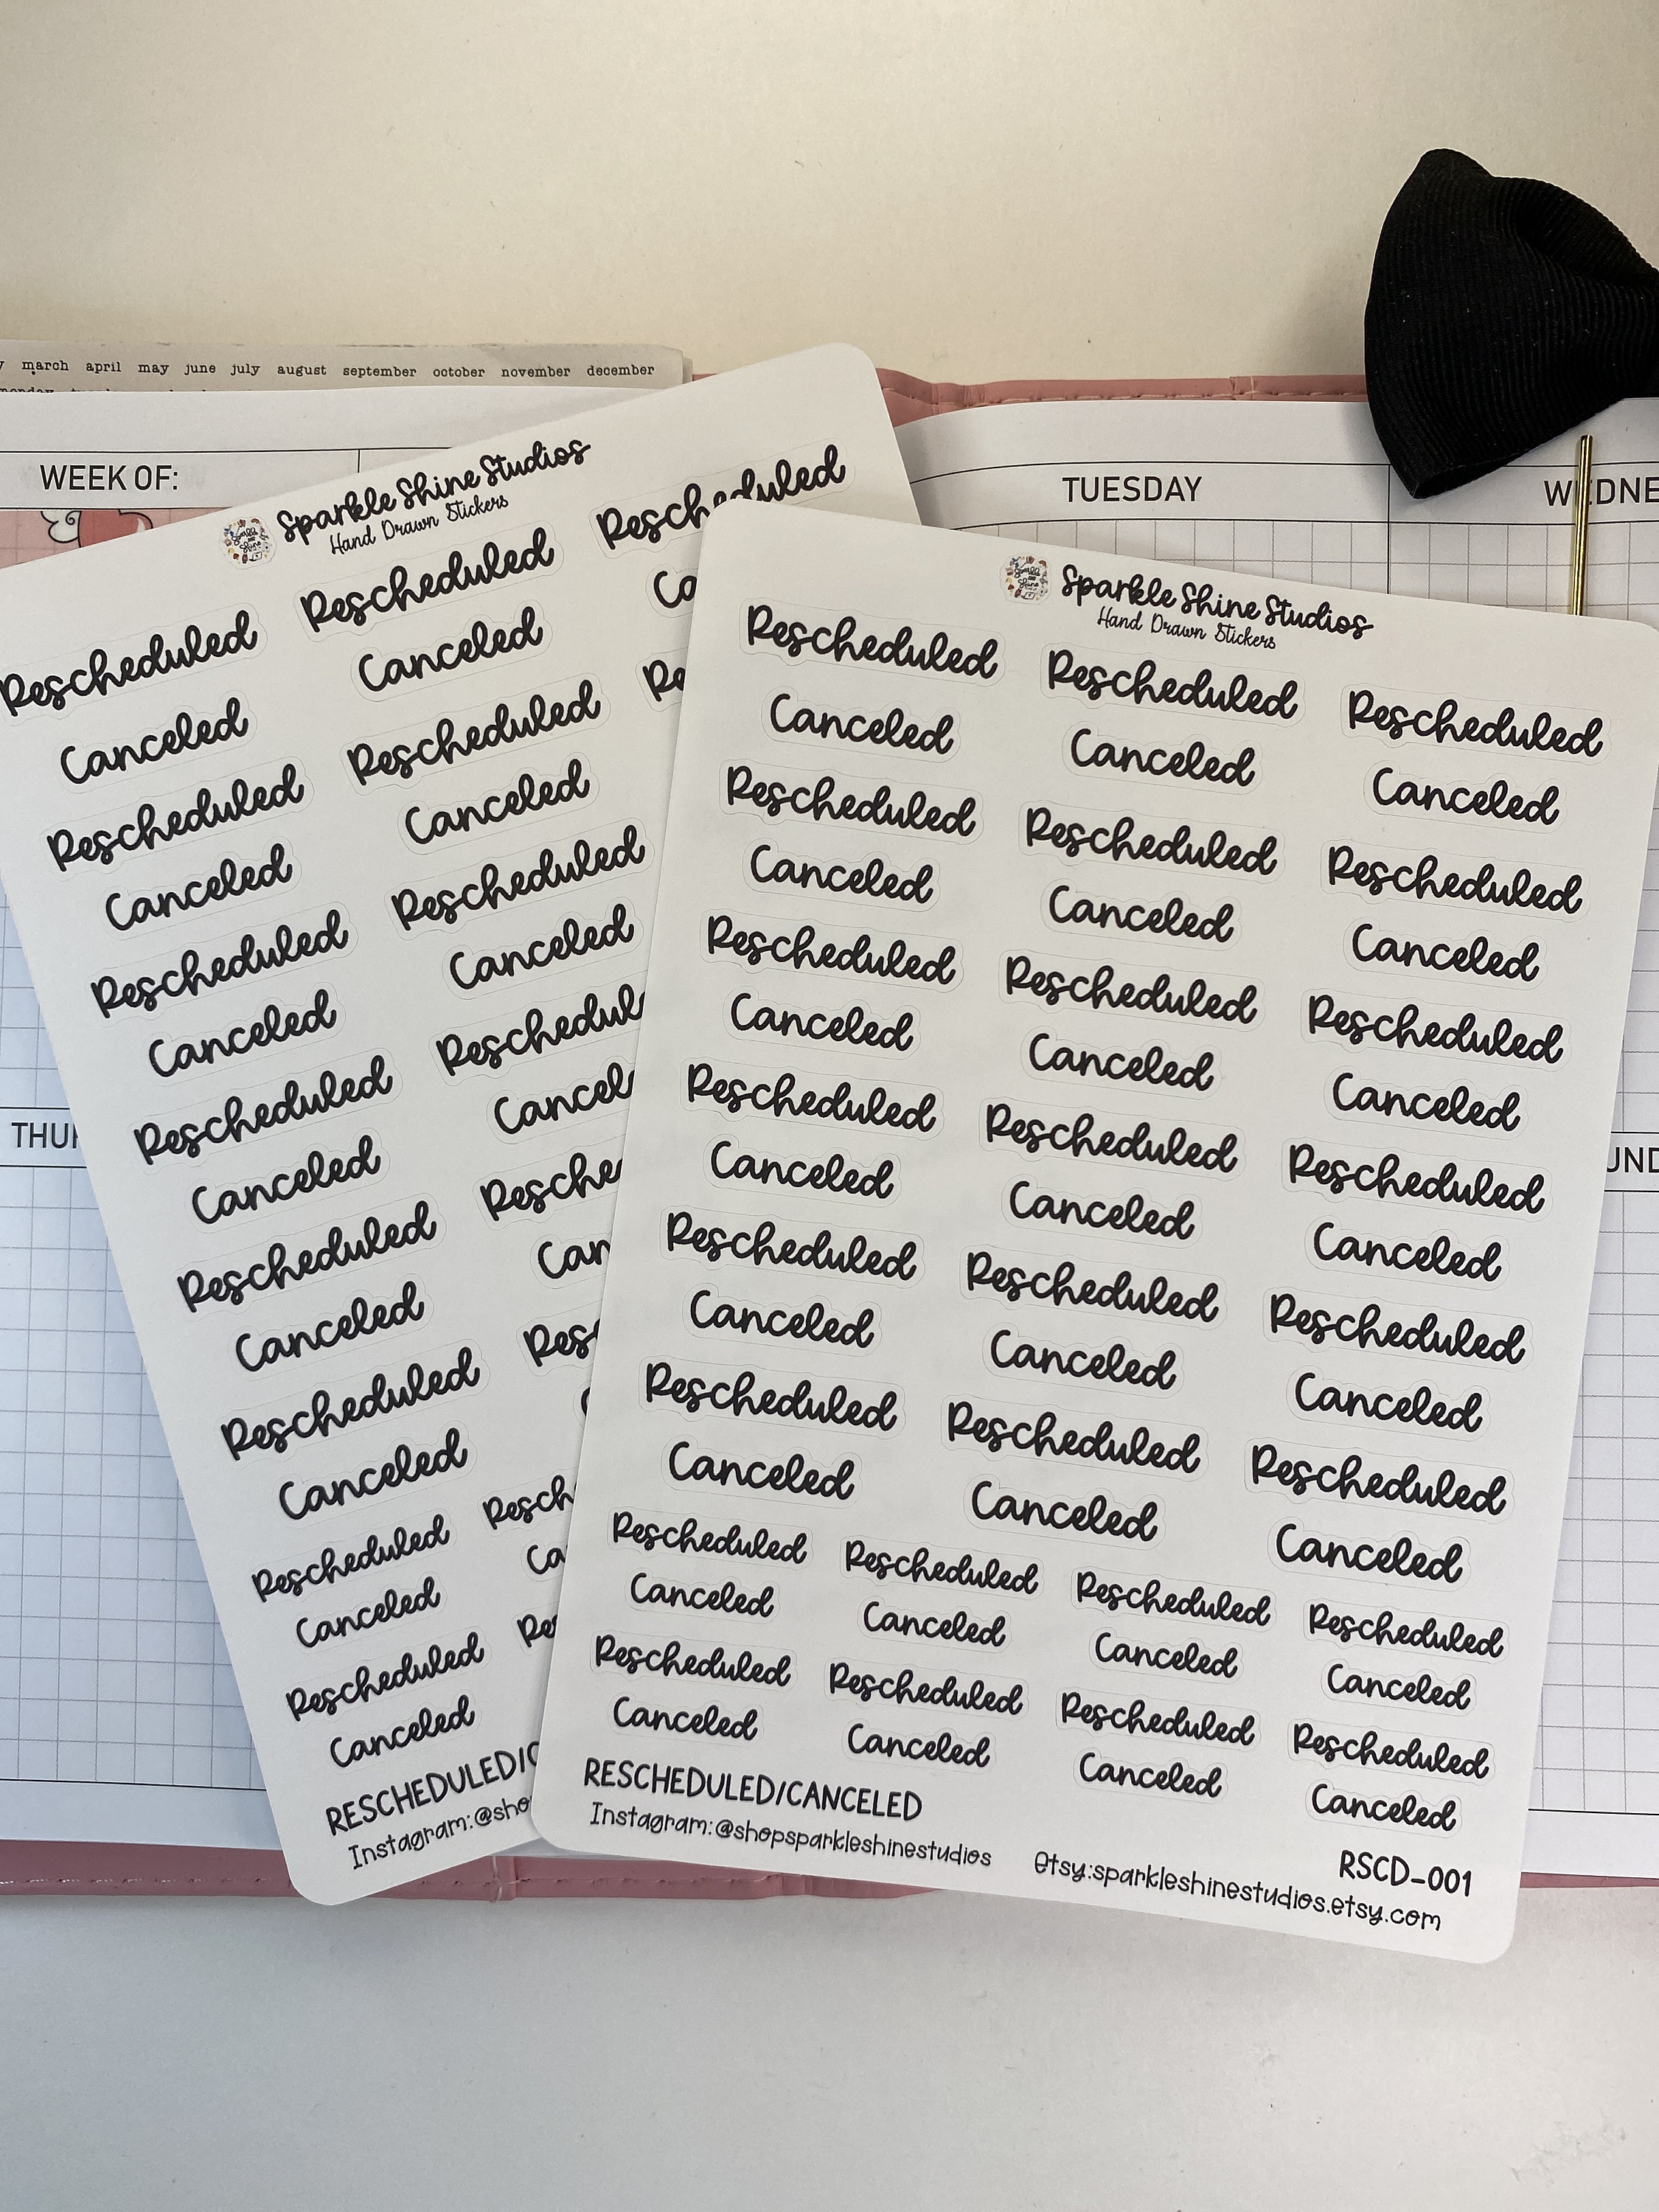 march april may june july august september october november december
WEEK OF:
TUESDAY
Sparkle Shine Studios
Hand Drawn Stickers
Rescheduled Rescheduled Rescheduled
Canceled Canceled
Rescheduled Rescheduled
Canceled Canceled
Rescheduled Rescheduled
Canceled Canceled
Rescheduled
Canceled
Rescheduled
Canceled
Rescheduled
Canceled
Rescheduled
Canceled
Rescheduled
Canceled
Sparkle Shine Studios
Hand Drawn Stickers
Rescheduled Rescheduled Rescheduled
Canceled Canceled Canceled
Rescheduled Rescheduled Rescheduled
Canceled Canceled Canceled
Rescheduled Rescheduled Rescheduled
Canceled Canceled Canceled
Rescheduled Rescheduled Rescheduled
Canceled Canceled Canceled
Rescheduled Rescheduled Rescheduled
Canceled Canceled Canceled
Rescheduled Rescheduled Rescheduled
Canceled Canceled Canceled
Rescheduled Rescheduled Rescheduled Rescheduled
Canceled Canceled Canceled Canceled
Rescheduled Rescheduled Rescheduled Rescheduled
Canceled Canceled Canceled Canceled
RESCHEDULED/CANCELED
RSCD-001
Instagram:@shopsparkleshinestudios Etsy:sparkleshinestudios.etsy.com